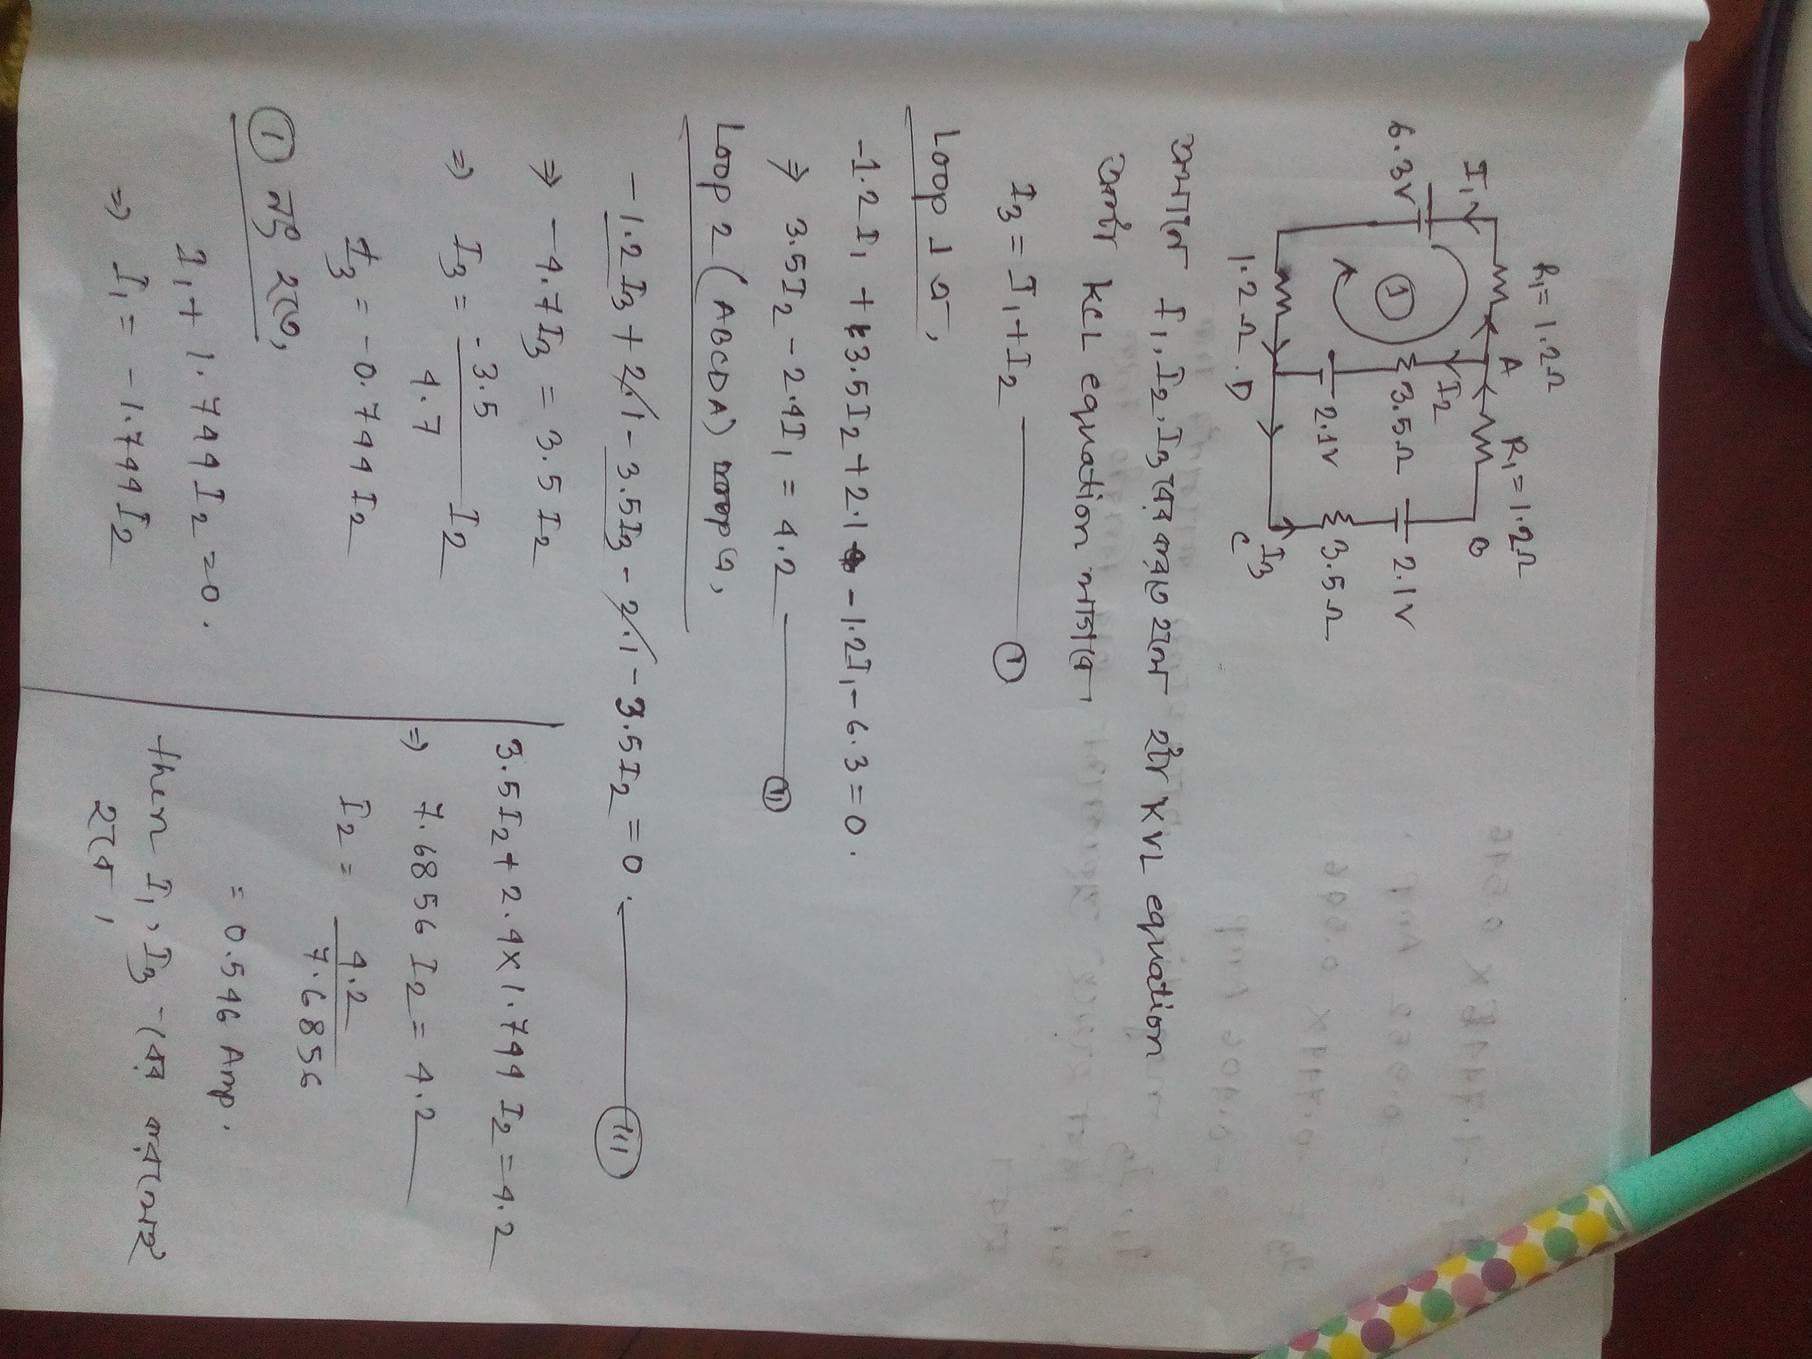 R₁ = 1.2Ω
R₁ = 1.2Ω
I₁
A
B
I₂
6.3V
1
3.5Ω
2.1V
2.1V
3.5Ω
1.2Ω
D
C
I₃
I₁, I₂, I₃ KVL equation
KCL equation
I₃ = I₁ + I₂ ——— (I)
Loop 1 এ,
-1.2 I₁ + 3.5 I₂ + 2.1 - 1.2 I₁ - 6.3 = 0.
⇒ 3.5 I₂ - 2.4 I₁ = 4.2 ——— (II)
Loop 2 (ABCDA)
-1.2 I₃ + 2.1 - 3.5 I₃ - 2.1 - 3.5 I₂ = 0. ——— (III)
⇒ -4.7 I₃ = 3.5 I₂
⇒ I₃ = -3.5/4.7 I₂
I₃ = -0.744 I₂
(1) নং হতে,
I₁ + 1.744 I₂ = 0.
⇒ I₁ = -1.744 I₂
3.5 I₂ + 2.4 × 1.744 I₂ = 4.2
⇒ 7.6856 I₂ = 4.2
I₂ = 4.2/7.6856
= 0.546 Amp.
then I₁, I₃
হবে,